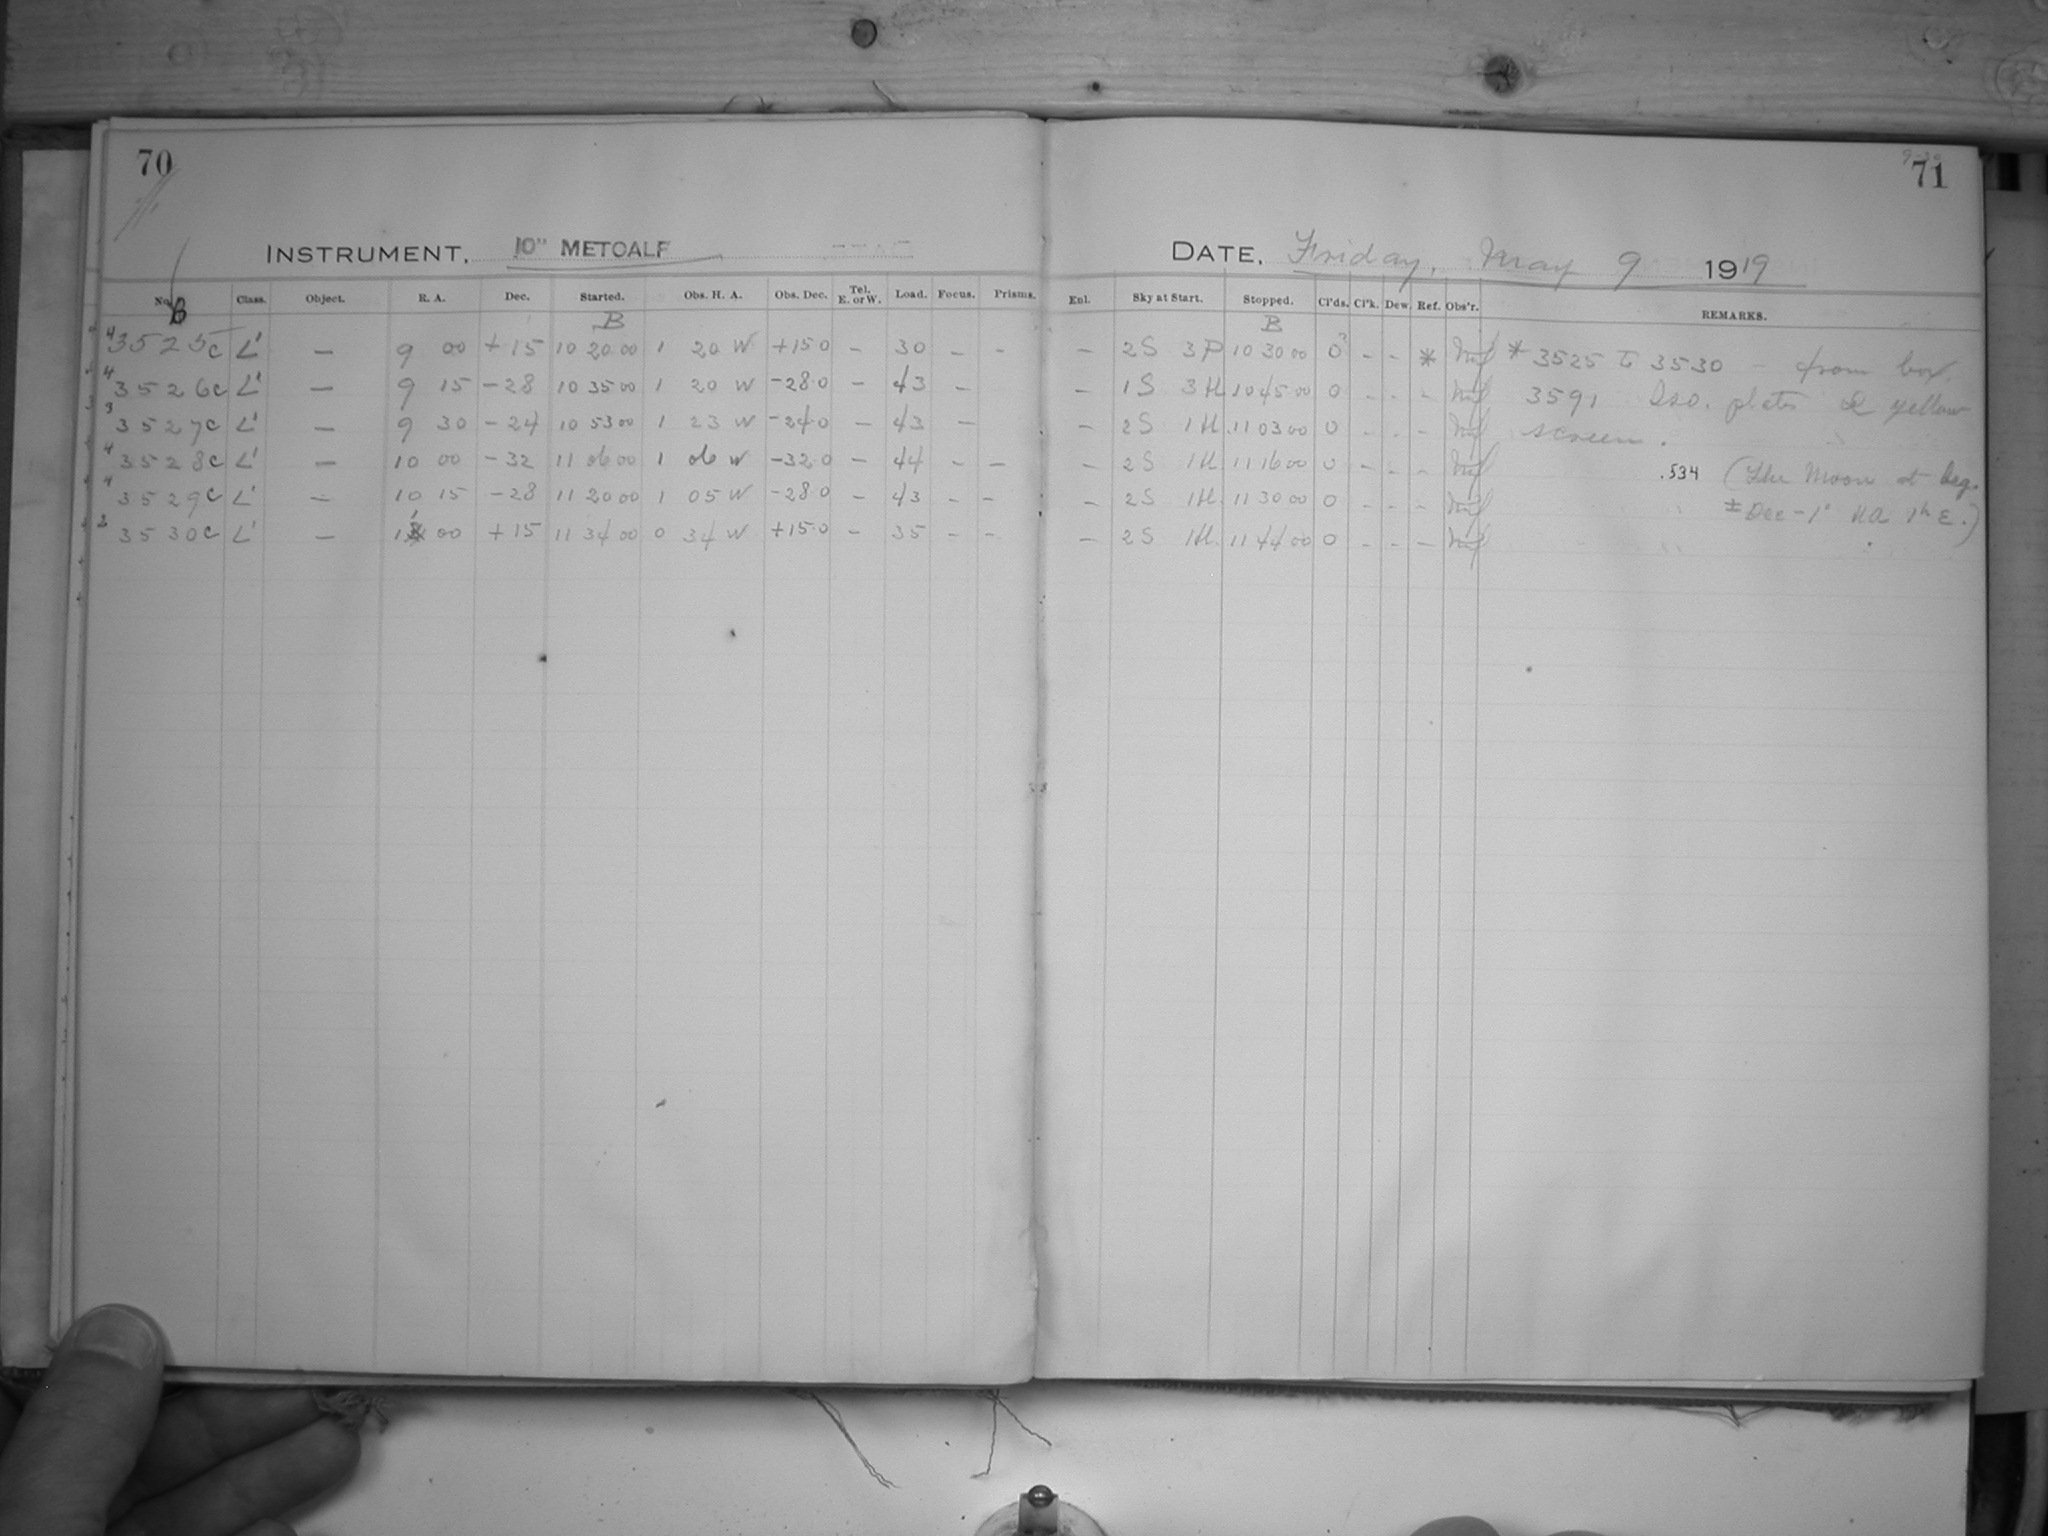 70
71
INSTRUMENT, 10" METCALF
DATE, Friday, May 9 1919
No. Class. Object. R. A. Dec. Started. Obs. H. A. Obs. Dec. Tel. E. or W. Load. Focus. Prisms. Eul. Sky at Start. Stopped. Cl'ds. Cl'k. Dew. Ref. Obs'r. REMARKS.
B B B
4 3525c L' — 9 00 +15 10 20 00 1 20 W +15 0 – 30 – – – 2S 3P 10 30 00 0? – – * * 3525 to 3530 – from box
4 3526c L' — 9 15 -28 10 35 00 1 20 W -28 0 – 43 – – 1S 3H 10 45 00 0 – – – 3591 Iso. plates & yellow
3 3527c L' — 9 30 -24 10 53 00 1 23 W -24 0 – 43 – – 2S 1H 11 03 00 0 – – – screen.
4 3528c L' — 10 00 -32 11 06 00 1 06 W -32 0 – 44 – – – 2S 1H 11 16 00 0 – – – .534 (The Moon at beg.
4 3529c L' — 10 15 -28 11 20 00 1 05 W -28 0 – 43 – – – 2S 1H 11 30 00 0 – – – ± Dec -1° HA 1h E.)
3530c L' — 00 +15 11 34 00 0 34 W +15 0 – 35 – – – 2S 1H 11 44 00 0 – – –